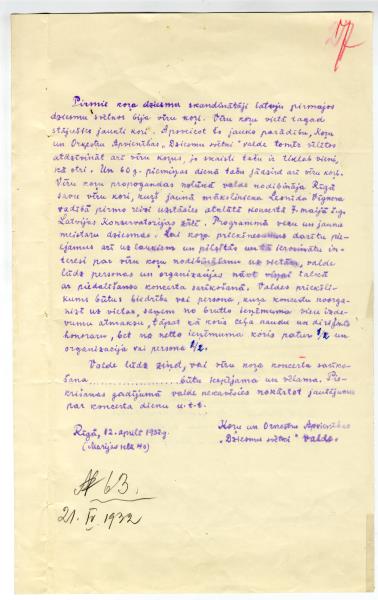 Pirmie koŗa dziesmu skandinātāji latvju pirmajos
dziesmu svētkos bija vīru koŗi. Vīru koŗu vietā tagad
stājušies jaukti koŗi. Apsveicot šo jauko parādību, Koŗu
un Orķestru Apvienības „Dziesmu svētki" valde tomēr vēlētos
atdzīvināt arī vīru koŗus, jo skaisti taču ir tiklab vieni,
kā otri. Un 60 g. piemiņas dienā taču jādzird arī vīru koŗi.
Vīru koŗu propogandas nolūkā valde nodibināja Rīgā
savu vīru kori, kuŗš jaunā mākslinieka Leonīda Vīgnera
vadībā pirmo reizi uzstāsies atklātā koncertā 7. maijā š.g.
Latvijas Konservatorijas zālē. Programmā vecu un jaunu
meistaru dziesmas. Lai koŗa priekšnesumus darītu pie-
ejamus arī uz laukiem un pilsētās un tā ierosinātu in-
teresi par vīru koŗu nodibināšanu uz vietām, valde
lūdz personas un organizācijas nākt viņai talkā
ar pīdalīšanos koncerta sarīkošanā. Valdes priekšli-
kums būtu: biedrība vai persona, kuŗa koncertu noorga-
nizē uz vietas, saņem no brutto ieņēmuma visu izde-
vumu atmaksu, tāpat kā koris ceļa naudu un diriģents
honoraru, bet no netto ieņēmuma koris patur 1/2 un
organizācija vai persona 1/2.
Valde lūdz ziņot, vai vīru koŗa koncerta sarīko-
šana ........................ būtu iespējama un vēlama. Pie-
krišanas gadījumā valde nekavēsies nokārtot jautājumu
par koncerta dienu u.t.t.
Rīgā, 12. aprilī 1932 g.
(Marijas ielā
Koŗu un Orķestru Apvienības
„Dziesmu svētki" valde.
№ 63.
21. IV. 1932